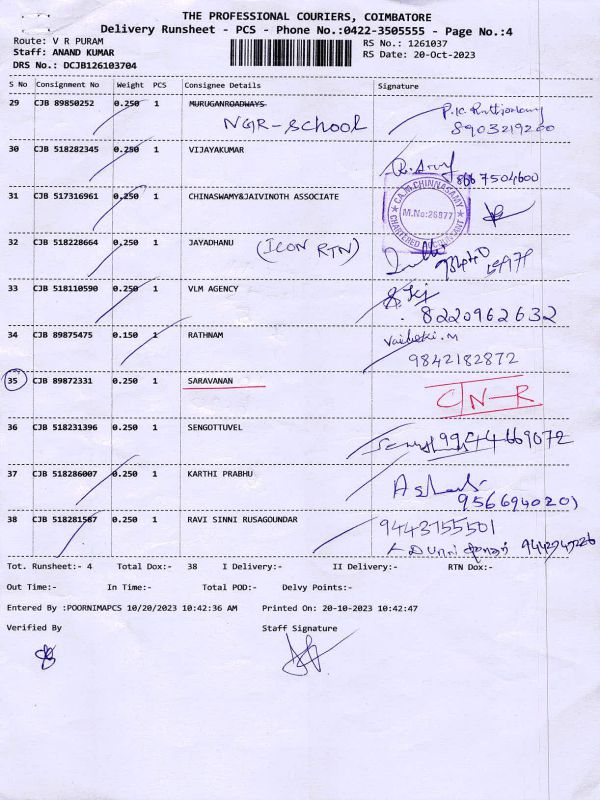 THE PROFESSIONAL COURIERS, COIMBATORE
Delivery Runsheet - PCS - Phone No.:0422-3505555 - Page No.:4
Route: V R PURAM
Staff: ANAND KUMAR
DRS No.: DCJB126103704
RS No.: 1261037
RS Date: 20-Oct-2023
S No Consignment No Weight PCS Consignee Details Signature
29 CJB 89850252 0.250 1 MURUGANROADWAYS
NGR-School
8903219200
30 CJB 518282345 0.250 1 VIJAYAKUMAR
7504600
31 CJB 517316961 0.250 1 CHINASWAMY&JAIVINOTH ASSOCIATE
CA.M.CHINNASAMY
M.No:26877
CHARTERED ACCOUNTANT
32 CJB 518228664 0.250 1 JAYADHANU (ICON RTN)
33 CJB 518110590 0.250 1 VLM AGENCY
8220962632
34 CJB 89875475 0.150 1 RATHNAM
9842182872
35 CJB 89872331 0.250 1 SARAVANAN C/N-R
36 CJB 518231396 0.250 1 SENGOTTUVEL
9944669072
37 CJB 518286007 0.250 1 KARTHI PRABHU
9566940201
38 CJB 518281587 0.250 1 RAVI SINNI RUSAGOUNDAR
9443155501
Tot. Runsheet:- 4 Total Dox:- 38 I Delivery:- II Delivery:- RTN Dox:-
Out Time:- In Time:- Total POD:- Delvy Points:-
Entered By :POORNIMAPCS 10/20/2023 10:42:36 AM Printed On: 20-10-2023 10:42:47
Verified By Staff Signature